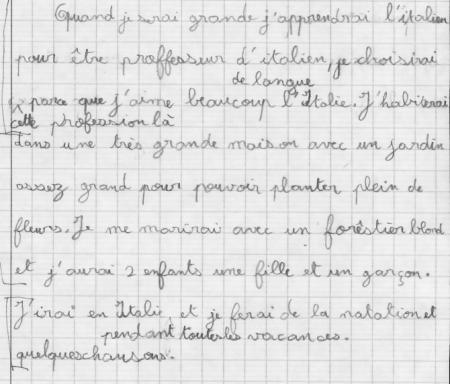 Quand je serai grande j'apprendrai l'italien
pour être proffesseur d'italien, je choisirai
de langue
parce que j'aime beaucoup l'Italie. J'habiterai
cette profession là
dans une très grande maison avec un jardin
assez grand pour pouvoir planter plein de
fleurs. Je me marirai avec un forêstier blond
et j'aurai 2 enfants une fille et un garçon.
J'irai en Italie, et je ferai de la natation et
pendant toutes les vacances.
quelques chansons.